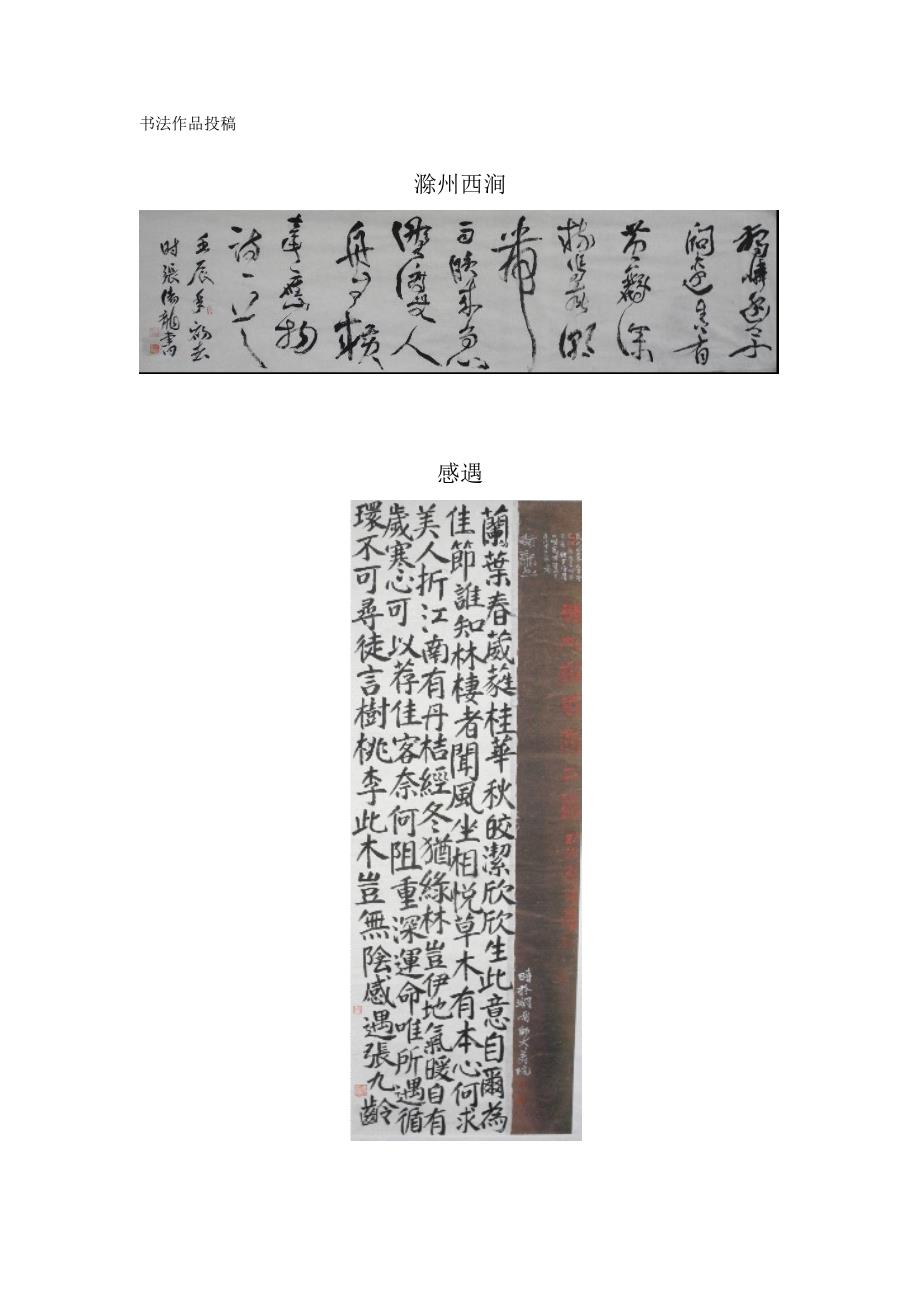 书法作品投稿
滁州西涧
獨憐幽草
澗邊生上有
黃鸝深
樹鳴春潮
帶
雨晚來急
野渡無人
舟自橫
韋應物
詩一首
壬辰年初
时張龍書
感遇
蘭葉春葳蕤桂華秋皎潔欣欣生此意自爾為
佳節誰知林棲者聞風坐相悅草木有本心何求
美人折江南有丹桔經冬猶綠林豈伊地氣暖自有
歲寒心可以荐佳客奈何阻重深運命唯所遇循
環不可尋徒言樹桃李此木豈無陰感遇張九齡
時於湖南師大美院